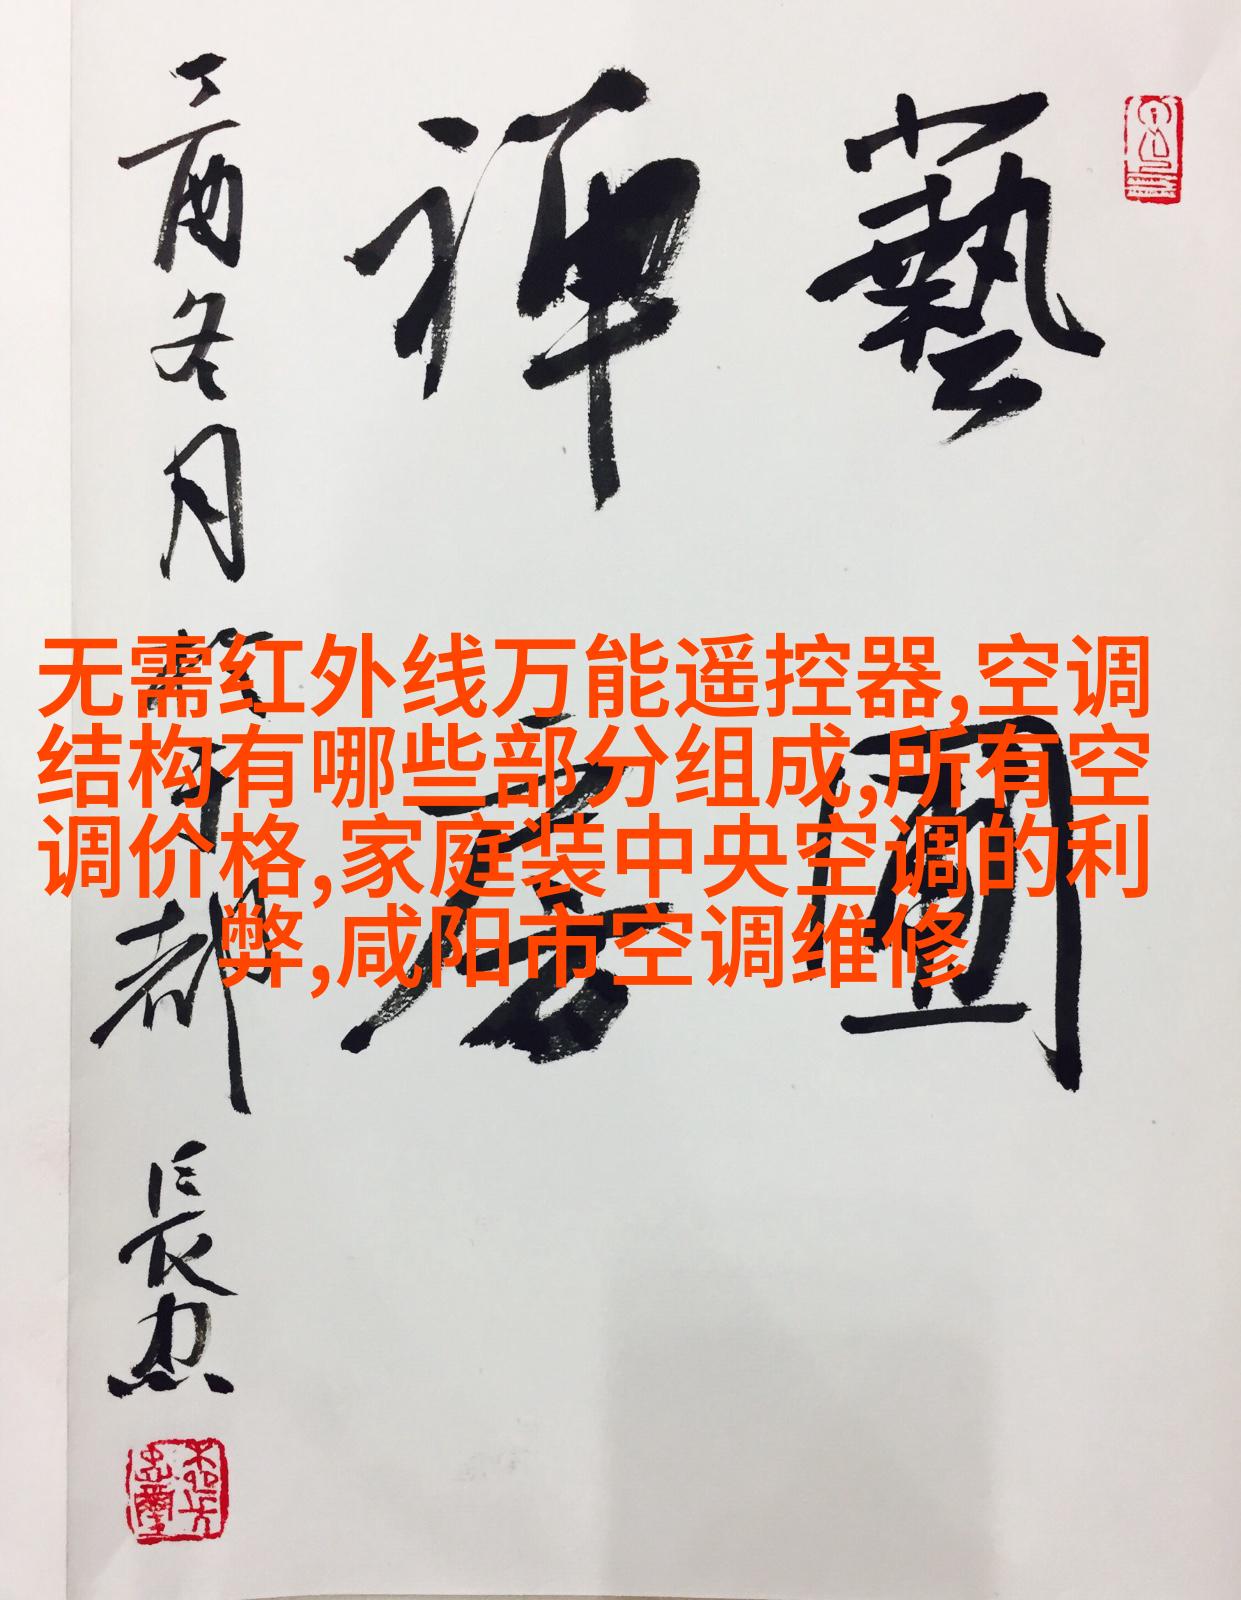 藝圃
禪房
丁酉冬月於丁都
長忠
无需红外线万能遥控器,空调
结构有哪些部分组成,所有空
调价格,家庭装中央空调的利
弊,咸阳市空调维修